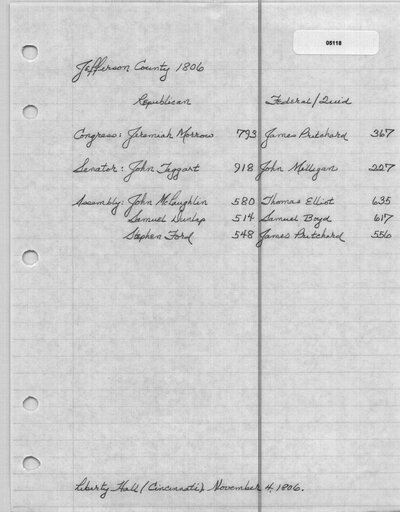 05118
Jefferson County 1806
Republican Federal/Quid
Congress: Jeremiah Morrow 793 James Pritchard 367
Senator: John Taggart 918 John Milligan 227
Assembly: John McLaughlin 580 Thomas Elliot 635
Samuel Dunlap 514 Samuel Boyd 617
Stephen Ford 548 James Pritchard 556
Liberty Hall (Cincinnati). November 4, 1806.